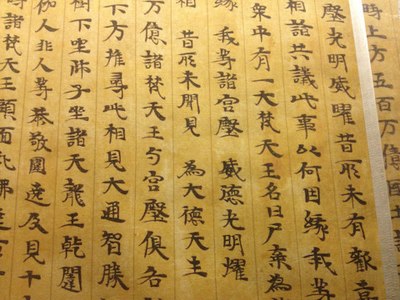 時上方五百万億國土
殿光明威曜昔所未有歡喜
相詣共議此事以何因緣我等
衆中有一大梵天王名曰尸棄為
緣 我等諸宮殿 威德光明耀
相 昔所未聞見 為大德天生
万億諸梵天王与宮殿俱各
下方推尋此相見大通智勝
樹下坐師子坐諸天龍王乾闥
伽人非人等恭敬圍遶及見十
時諸梵天王頭面礼佛遶百